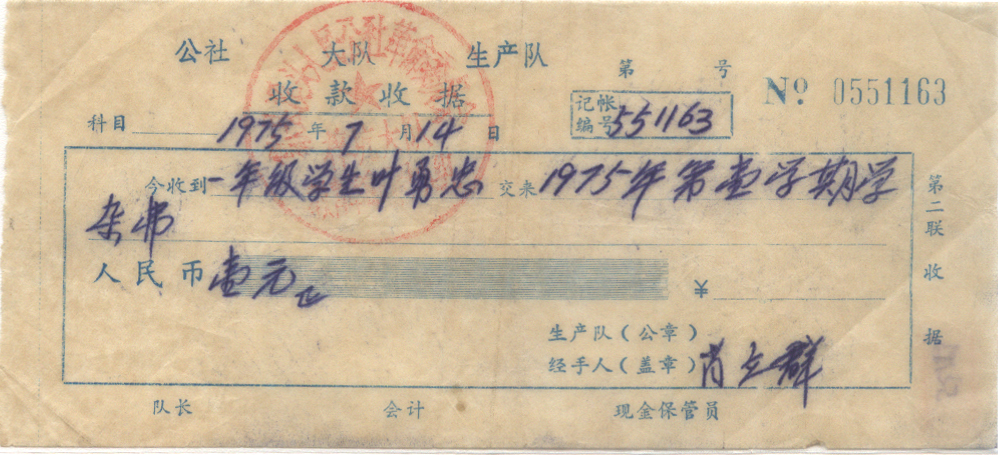 公社 大队 生产队
收款收据
第 号
№ 0551163
记帐编号 551163
科目 1975年7月14日
今收到 一年级学生叶勇忠 交来 1975年第壹学期学
杂费
人民币 壹元正 ¥
生产队(公章)
经手人(盖章) 肖立群
队长 会计 现金保管员
第二联 收据